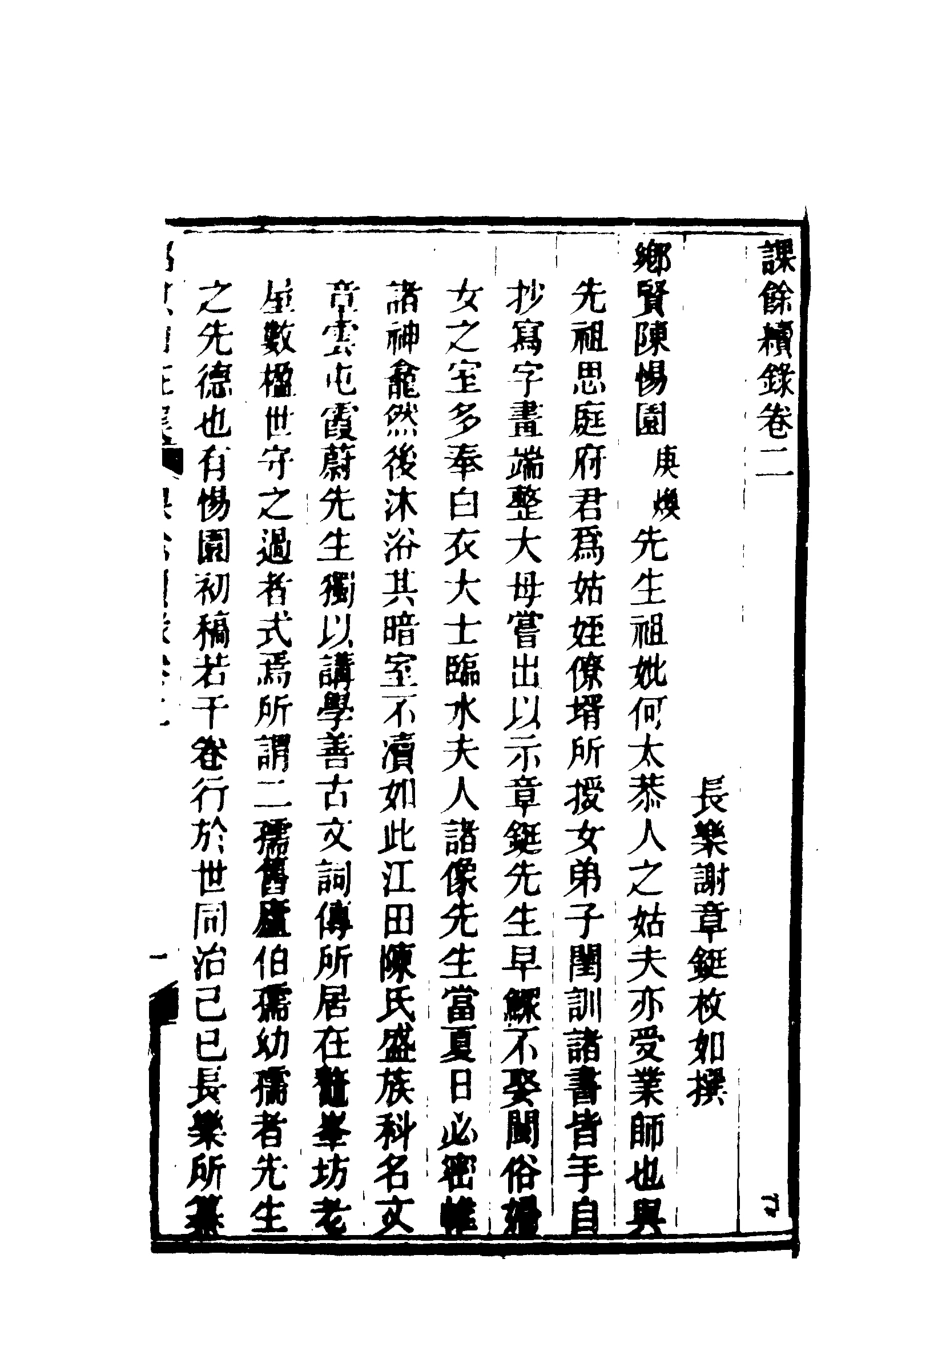 課餘續錄卷二
長樂謝章鋌枚如撰
鄉賢陳惕園庚煥先生祖妣何太恭人之姑夫亦受業師也與
先祖思庭府君爲姑姪僚壻所授女弟子閨訓諸書皆手自
抄寫字畫端整大母嘗出以示章鋌先生早鰥不娶閩俗婦
女之室多奉白衣大士臨水夫人諸像先生當夏日必密帷
諸神龕然後沐浴其暗室不瀆如此江田陳氏盛族科名文
章雲屯霞蔚先生獨以講學善古文詞傳所居在鼇峯坊老
屋數楹世守之過者式焉所謂二孺舊廬伯孺幼孺者先生
之先德也有惕園初稿若干卷行於世同治己巳長樂所纂